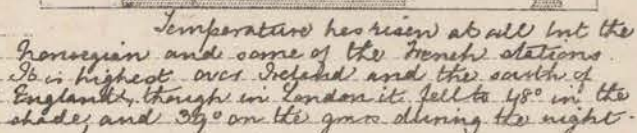 Temperature has risen at all but the
Norwegian and some of the French stations.
It is highest over Ireland and the south of
England, though in London it fell to 48° in the
shade, and 39° on the grass during the night.